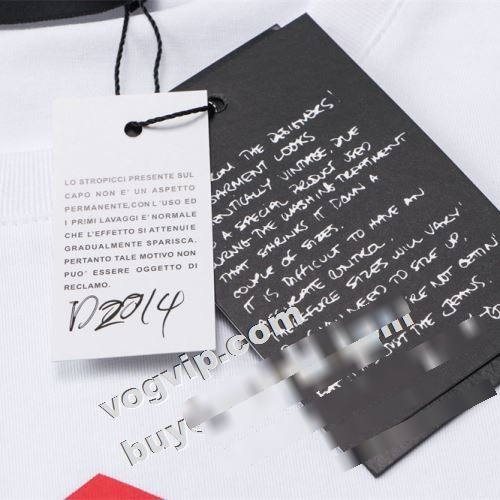 LO STROPICCI PRESENTE SUL
CAPO NON E' UN ASPETTO
PERMANENTE,CON L'USO ED
I PRIMI LAVAGGI E' NORMALE
CHE L'EFFETTO SI ATTENUI E
GRADUALMENTE SPARISCA.
PERTANTO TALE MOTIVO NON
PUO' ESSERE OGGETTO DI
RECLAMO.
D2214
THE DESIGNERS!
GARMENT LOOKS
VINTAGE. DUE
A SPECIAL PRODUCT USED
THE WASHING TREATMENT
THAT SHRINKS IT DOWN A
COUPLE OF SIZES.
IT IS DIFFICULT TO HAVE AN
CONTROL.
SIZES WILL VARY!
NEED TO SIZE UP.
NOT GETTIN'
THE JEANS.
vogvip.com